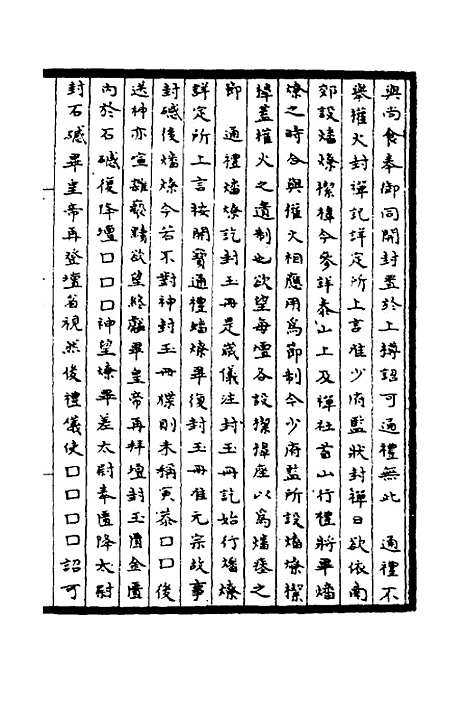 與尚食奉御同開封置於上樽詔可通禮無此　通禮不
舉㩁火封禪記詳定所上言准少府監狀封禪日欲依南
郊設燔燎㮮橰今參詳泰山上及禪社首山行禮將畢燔
燎之時合與㩁火相應用為節制今少府監所設燔燎㮮
橰蓋㩁火之遺制也欲望每壇各設㮮橰座以為燔瘞之
節　通禮燔燎訖封玉冊是歲儀注封玉冊訖始行燔燎
詳定所上言按開寶通禮燔燎畢復封玉冊准元宗故事
封䃭後燔燎今若不對神封玉冊檏則未稱寅恭口口後
送神亦宣雜褻黷欲望終獻畢皇帝再拜壇封玉匱金匱
內於石䃭復降壇口口口神望燎畢差太尉奉匱降太尉
封石䃭畢皇帝再登壇省視然後禮儀使口口口口詔可